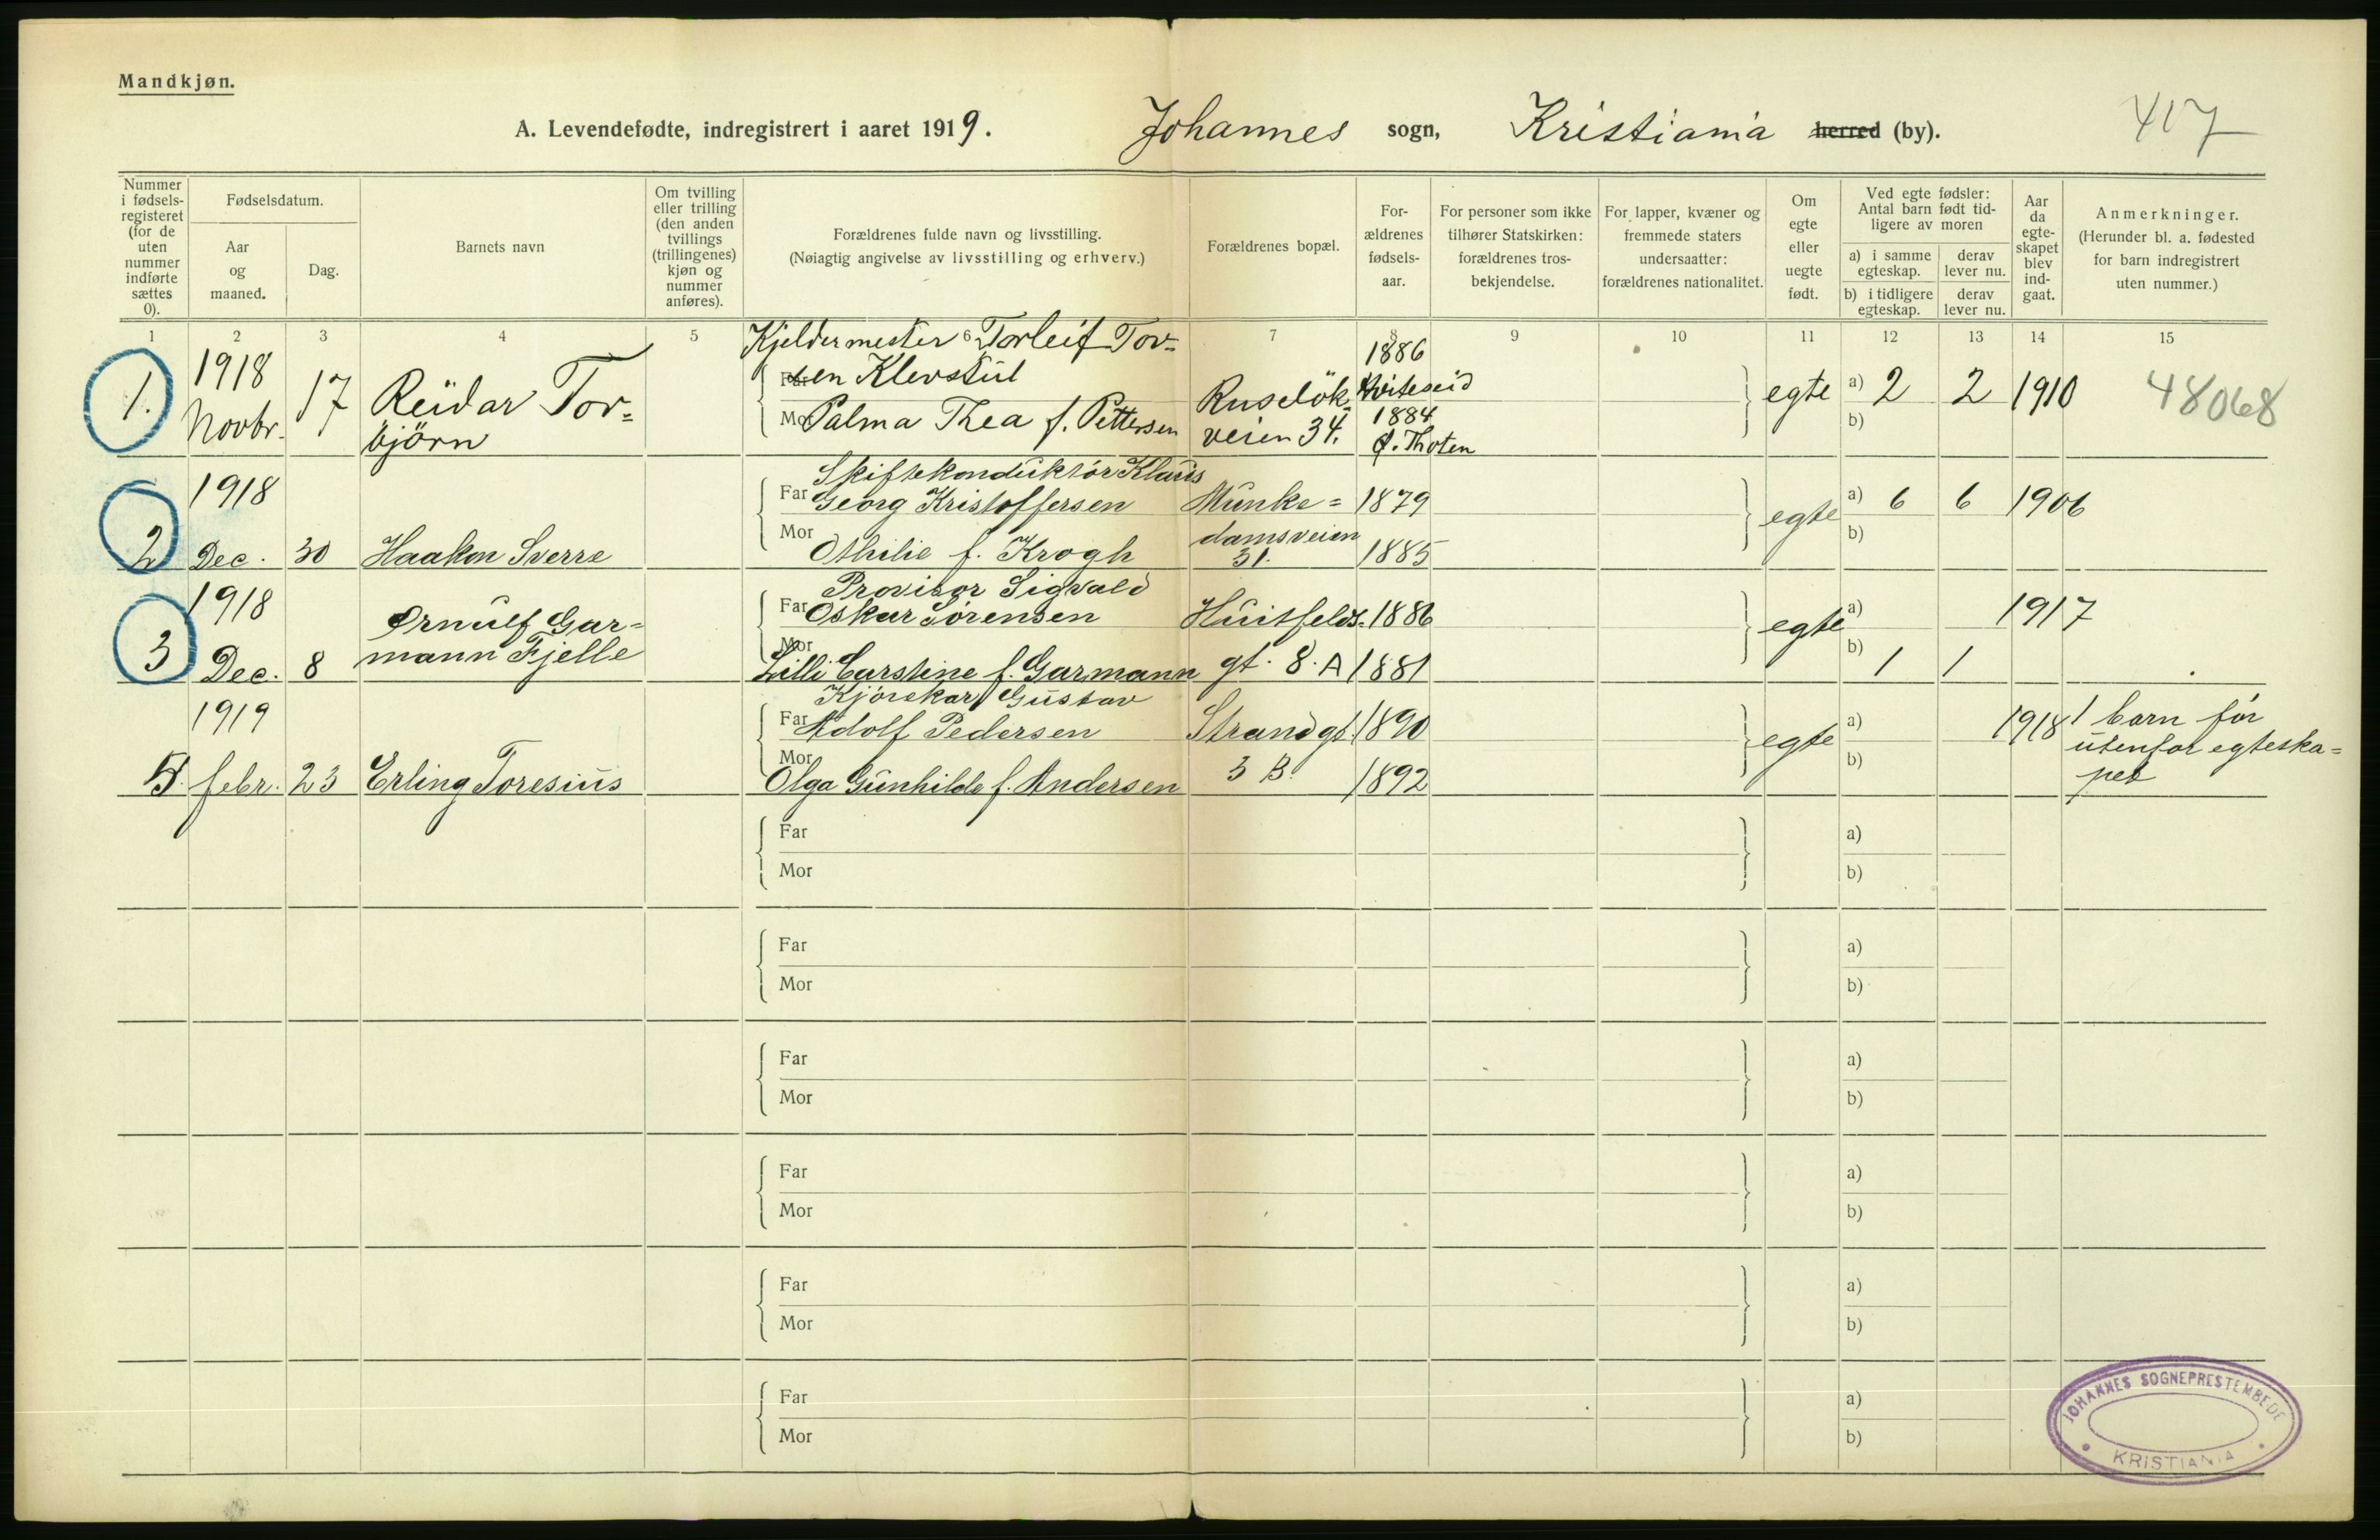 Mandkjøn.
A. Levendefødte, indregistrert i aaret 1919. Johannes sogn, Kristiania herred (by). 417
Nummer i fødselsregisteret (for de uten nummer indførte sættes 0).
Fødselsdatum.
Aar og maaned.
Dag.
Barnets navn
Om tvilling eller trilling (den anden tvillings (trillingenes) kjøn og nummer anføres).
Forældrenes fulde navn og livsstilling.
(Nøiagtig angivelse av livsstilling og erhverv.)
Forældrenes bopæl.
Forældrenes fødselsaar.
For personer som ikke tilhører Statskirken: forældrenes trosbekjendelse.
For lapper, kvæner og fremmede staters undersaatter: forældrenes nationalitet.
Om egte eller uegte født.
Ved egte fødsler: Antal barn født tidligere av moren
a) i samme egteskap.
derav lever nu.
b) i tidligere egteskap.
derav lever nu.
Aar da egteskapet blev indgaat.
Anmerkninger.
(Herunder bl. a. fødested for barn indregistrert uten nummer.)
1 2 3 4 5 6 7 8 9 10 11 12 13 14 15
Kjeldermester Torleif Tov=
1. 1918 Novbr. 17 Reidar Tor=
björn
Far sen Klevstul
Mor Palma Thea f. Pettersen
Ruselök=
veien 34.
1886
Hviteseid
1884
Ø. Thoten
egte a) 2 2 1910 48068
b)
2 1918 Dec. 30 Haakon Sverre
Skiftekonduktör Klaus
Far Georg Kristoffersen
Mor Othilie f. Krogh
Munke=
damsveien
31.
1879
1885
egte a) 6 6 1906
b)
3 1918 Dec. 8 Ørnulf Gar=
mann Fjelle
Provisor Sigvald
Far Oskar Sörensen
Mor Lilli Carstine f. Garmann
Huitfelds.
gt. 8. A
1886
1881
egte a) 1917
b) 1 1
1919 febr. 23 Erling Toresius
Kjörekar Gustav
Far Adolf Pedersen
Mor Olga Gunhilde f. Andersen
Strandgt.
3 B.
1890
1892
egte a) 1918
b)
1 barn för
utenfor egteska=
pet
Far a)
Mor b)
Far a)
Mor b)
Far a)
Mor b)
Far a)
Mor b)
Far a)
Mor b)
Far a)
Mor b)
JOHANNES SOGNEPRESTEMBEDE
KRISTIANIA